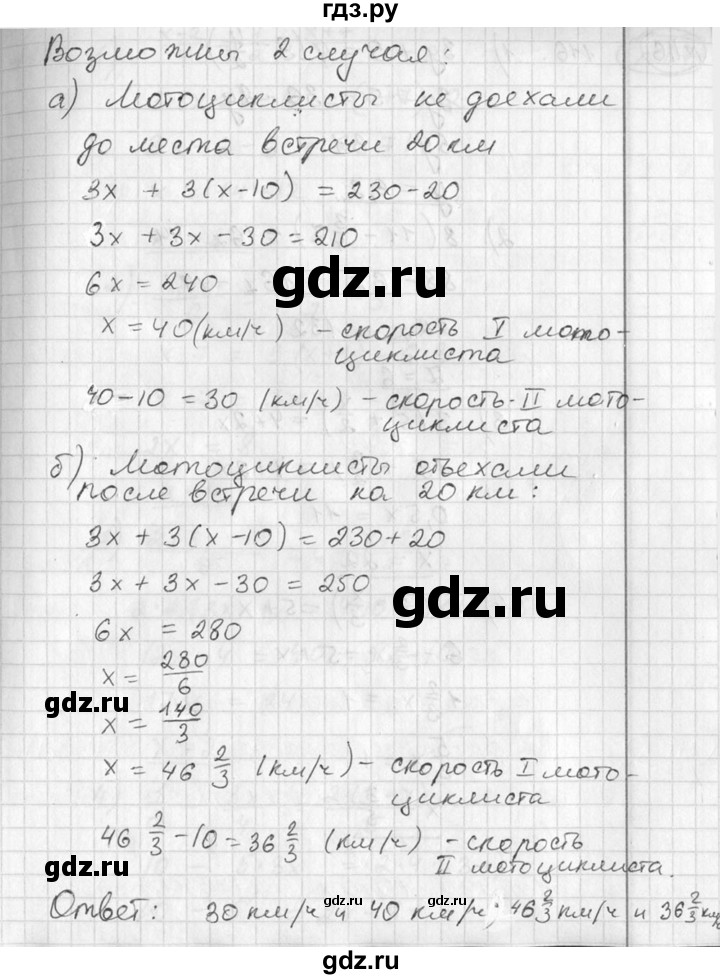 гдз.ру
Возможны 2 случая:
а) Мотоциклисты не доехали
до места встречи 20 км
3х + 3(х-10) = 230-20
3х + 3х - 30 = 210
6х = 240
gdz.ru
х = 40 (км/ч) - скорость I мото-
циклиста
40-10 = 30 (км/ч) - скорость II мото-
циклиста
б) Мотоциклисты отъехали
после встречи на 20 км:
3х + 3(х-10) = 230+20
3х + 3х - 30 = 250
gdz.ru
6х = 280
х = 280/6
gdz.ru
х = 140/3
х = 46 2/3 (км/ч) - скорость I мото-
циклиста
46 2/3 - 10 = 36 2/3 (км/ч) - скорость
II мотоциклиста.
gdz.ru
gdz.ru
Ответ: 30 км/ч и 40 км/ч; 46 2/3 км/ч и 36 2/3 км/ч
gdz.ru
gdz.ru